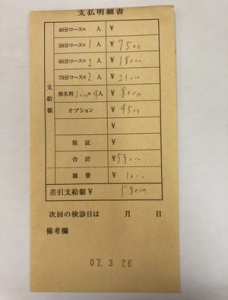 支払明細書
支給額
40分コース× 人 ¥
50分コース×1人 ¥7500
60分コース×2人 ¥18000
70分コース×2人 ¥21000
指名料 ×4人 ¥8000
オプション ¥4500
¥
保証 ¥
合計 ¥59000
雑費 ¥1000
差引支給額¥ 58000
次回の検診日は 月 日
備考欄
07. 3. 26